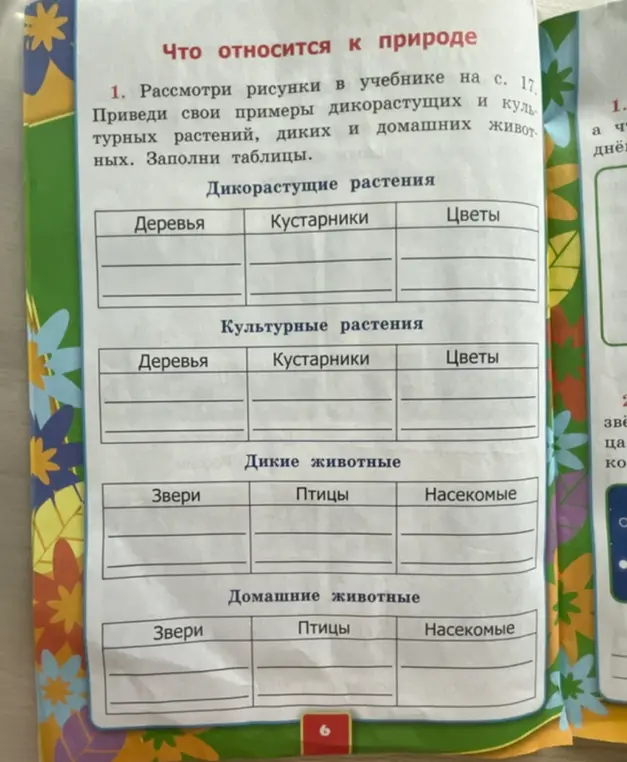 Что относится к природе
1. Рассмотри рисунки в учебнике на с. 17.
Приведи свои примеры дикорастущих и куль-
турных растений, диких и домашних живот-
ных. Заполни таблицы.
Дикорастущие растения
Деревья Кустарники Цветы
Культурные растения
Деревья Кустарники Цветы
Дикие животные
Звери Птицы Насекомые
Домашние животные
Звери Птицы Насекомые
6
1.
а